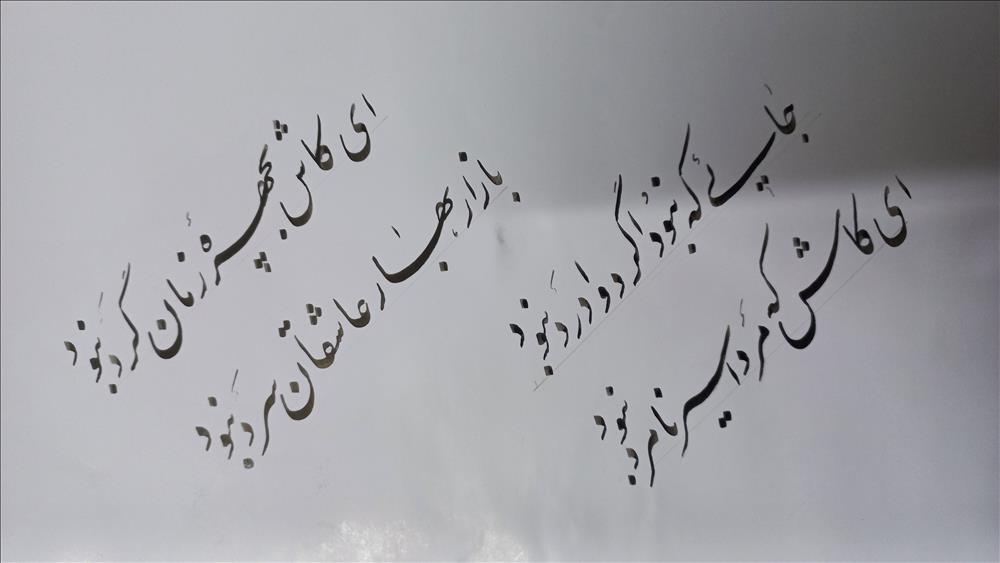 جایی که نبود اگر دوا درد نبود
ای کاش که مرد اسیر نامرد نبود
ای کاش به چهره زمان گرد نبود
بازار بهار عاشقان سرد نبود